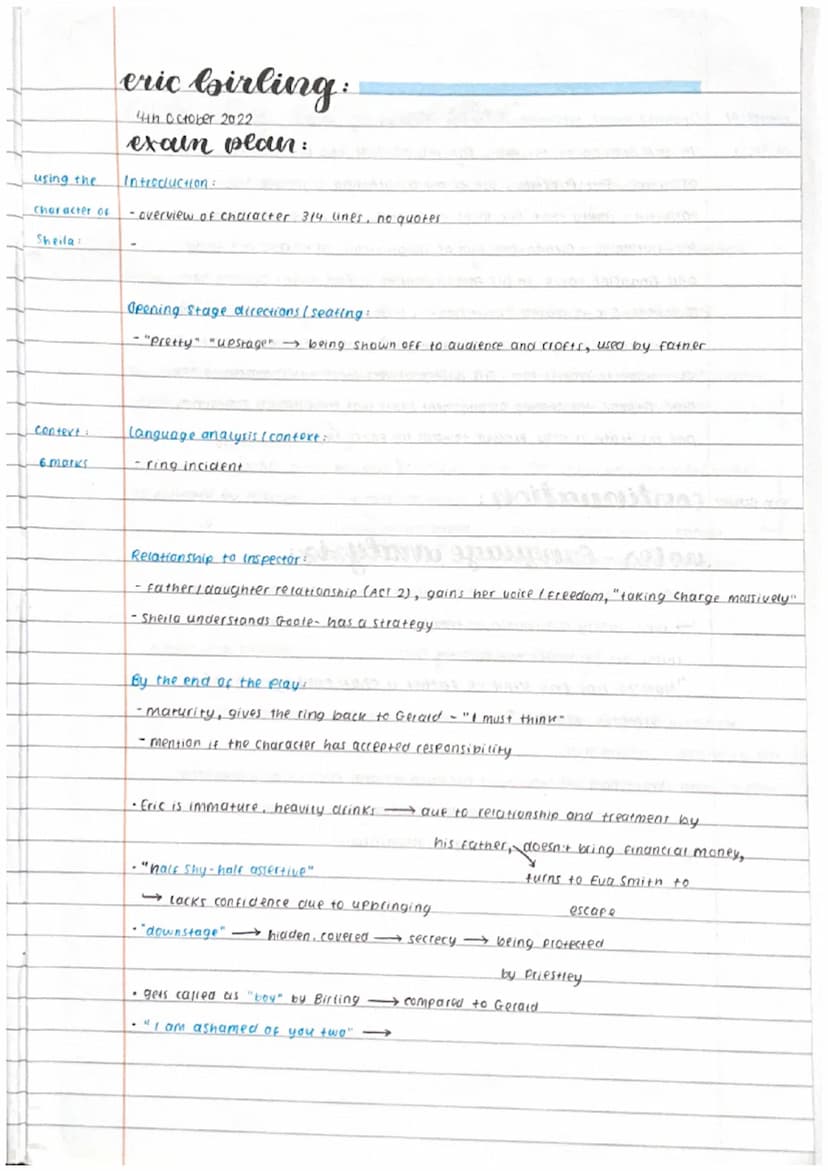 eric birling:
4th October 2022
exam plan:
using the Introduction:
character of - overview of character 3/4 lines, no quotes
Sheila: -
Opening stage directions / seating:
- "Pretty" "upstage" → being shown off to audience and crofts, used by father
context: Language analysis / context:
6 marks - ring incident
Relationship to Inspector:
- Father / daughter relationship (Act 2), gains her voice / freedom, "taking charge massively"
- Sheila understands Goole - has a strategy
By the end of the play:
- maturity, gives the ring back to Gerald - "I must think"
- mention if the character has accepted responsibility
• Eric is immature, heavily drinks → due to relationship and treatment by
his father, doesn't bring financial money,
• "half shy - half assertive" turns to Eva Smith to
↪ lacks confidence due to upbringing escape
• "downstage" → hidden, covered → secrecy → being protected
by Priestley
• gets called as "boy" by Birling → compared to Gerald
• "I am ashamed of you two" →